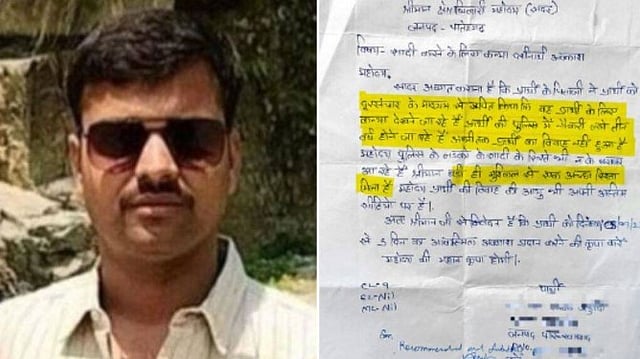 श्रीमान क्षेत्राधिकारी महोदय (सदर)
जनपद -
विषय:- शादी करने के लिए कन्या अवकाश
महोदय,
सादर अवगत कराना है कि प्रार्थी के पिताजी ने प्रार्थी को
दूरसंचार के माध्यम से सूचित किया कि वह प्रार्थी के लिए
कन्या देखने जा रहे हैं प्रार्थी की पुलिस में नौकरी लगे तीन
वर्ष होने जा रहे हैं अभी तक प्रार्थी का विवाह नहीं हुआ है
महोदय पुलिस के लड़को के शादी के रिश्ते भी न के बराबर
आ रहे हैं श्रीमान बड़ी ही मुश्किल से एक अच्छा रिश्ता
मिला है महोदय प्रार्थी की विवाह की आयु भी अपनी अन्तिम
सीढ़ियों पर है।
अतः श्रीमान जी से निवेदन है कि प्रार्थी को दिनांक
से 5 दिन का आकस्मिक अवकाश प्रदान करने की कृपा करें
महोदय की महान कृपा होगी।
CL-9
EL-Nil
ML-Nil
प्रार्थी
जनपद
Recommended and